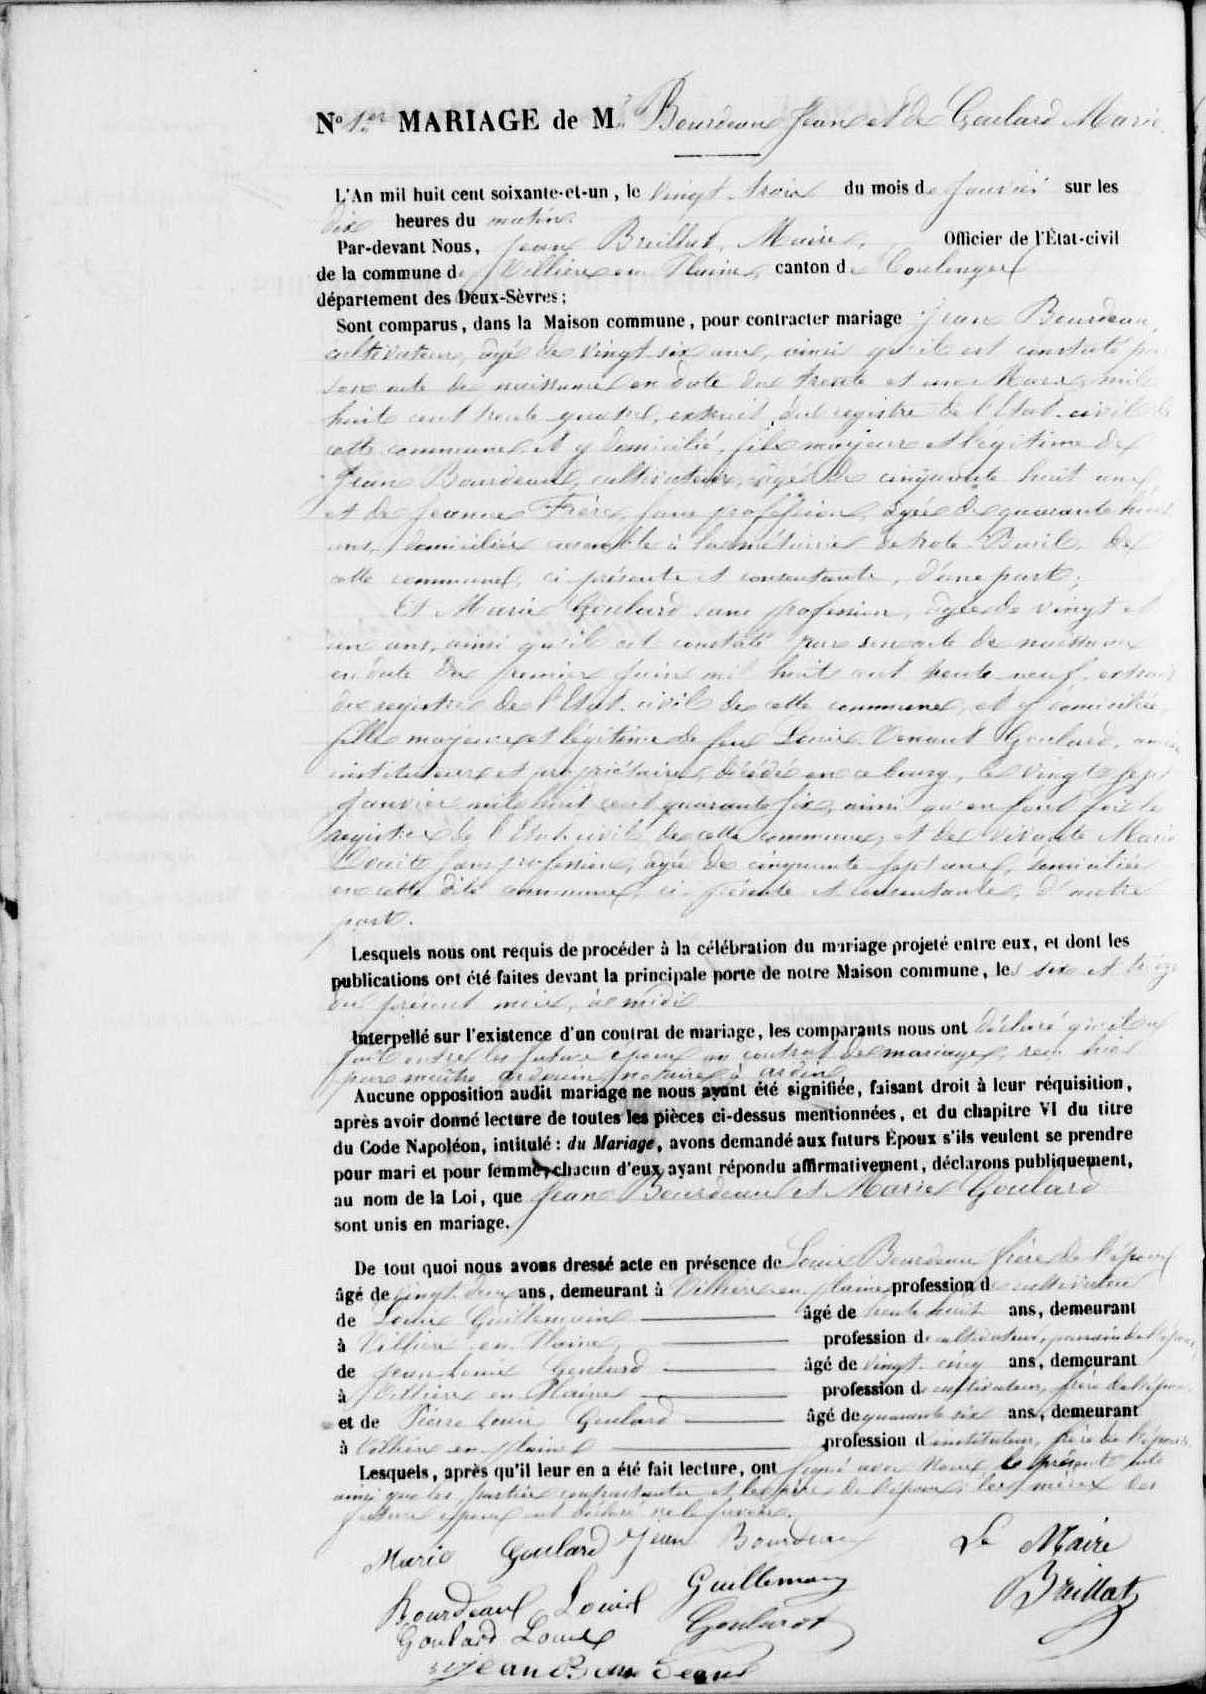 No 1er MARIAGE de Mr Bourdeau Jean et de Goulard Marie
L'An mil huit cent soixante-et-un, le vingt trois du mois de Janvier sur les
dix heures du matin.
Par-devant Nous, Jean Breillat, Maire, Officier de l'État-civil
de la commune de Villiers en Plaine, canton de Coulonges
département des Deux-Sèvres;
Sont comparus, dans la Maison commune, pour contracter mariage Jean Bourdeau,
cultivateur, âgé de vingt six ans, ainsi qu'il est constaté par
son acte de naissance en date du trente et un Mars mil
huit cent trente quatre, extrait du registre de l'Etat-civil de
cette commune, et y domicilié, fils majeur et légitime de
Jean Bourdeau, cultivateur, âgé de cinquante huit ans
et de Jeanne Frère, sans profession, âgée de quarante
ans, domiciliés ensemble à la métairie de de
cette commune, ci présents et consentants, d'une part;
Et Marie Goulard sans profession, âgée de vingt et
un ans, ainsi qu'il est constaté par son acte de naissance
en date du premier Juin mil huit cent trente neuf, extrait
du registre de l'Etat-civil de cette commune, et y domiciliée,
fille majeure et légitime de feu Louis Venant Goulard, ancien
instituteur et propriétaire, décédé en ce bourg, le vingt sept
Janvier mil huit cent quarante six, ainsi qu'en font foi les
registres de l'Etat-civil de cette commune, et de vivante Marie
sans profession, âgée de cinquante sept ans, domiciliée
en cette dite commune, ci-présente et consentante, d'autre
part.
Lesquels nous ont requis de procéder à la célébration du mariage projeté entre eux, et dont les
publications ont été faites devant la principale porte de notre Maison commune, les six et treize
du présent mois, à midi
Interpellé sur l'existence d'un contrat de mariage, les comparants nous ont déclaré qu'il a
fait entre les futurs époux un contrat de mariage, reçu hier
par maître Ardouin notaire à Ardin
Aucune opposition audit mariage ne nous ayant été signifiée, faisant droit à leur réquisition,
après avoir donné lecture de toutes les pièces ci-dessus mentionnées, et du chapitre VI du titre
du Code Napoléon, intitulé: du Mariage, avons demandé aux futurs Époux s'ils veulent se prendre
pour mari et pour femme, chacun d'eux ayant répondu affirmativement, déclarons publiquement,
au nom de la Loi, que Jean Bourdeau et Marie Goulard
sont unis en mariage.
De tout quoi nous avons dressé acte en présence de Louis Bourdeau frère de l'époux
âgé de vingt deux ans, demeurant à Villiers en plaine profession de cultivateur
de Louis Guillemain âgé de trente huit ans, demeurant
à Villiers en Plaine, profession de cultivateur, parrain de l'époux,
de Jean Louis Goulard âgé de vingt cinq ans, demeurant
à Villiers en Plaine profession de cultivateur, frère de l'épouse
et de Pierre Louis Goulard âgé de quarante six ans, demeurant
à Villiers en plaine profession d'instituteur, frère de l'épouse
Lesquels, après qu'il leur en a été fait lecture, ont signé avec Nous le présent acte
ainsi que les parties contractantes et le père de l'époux; les mères des
futurs époux ont déclaré ne le savoir.
Marie Goulard Jean Bourdeau Le Maire
Bourdeau Louis Guillemain Breillat
Goulard Louis Goulard
Jean Bourdeaud